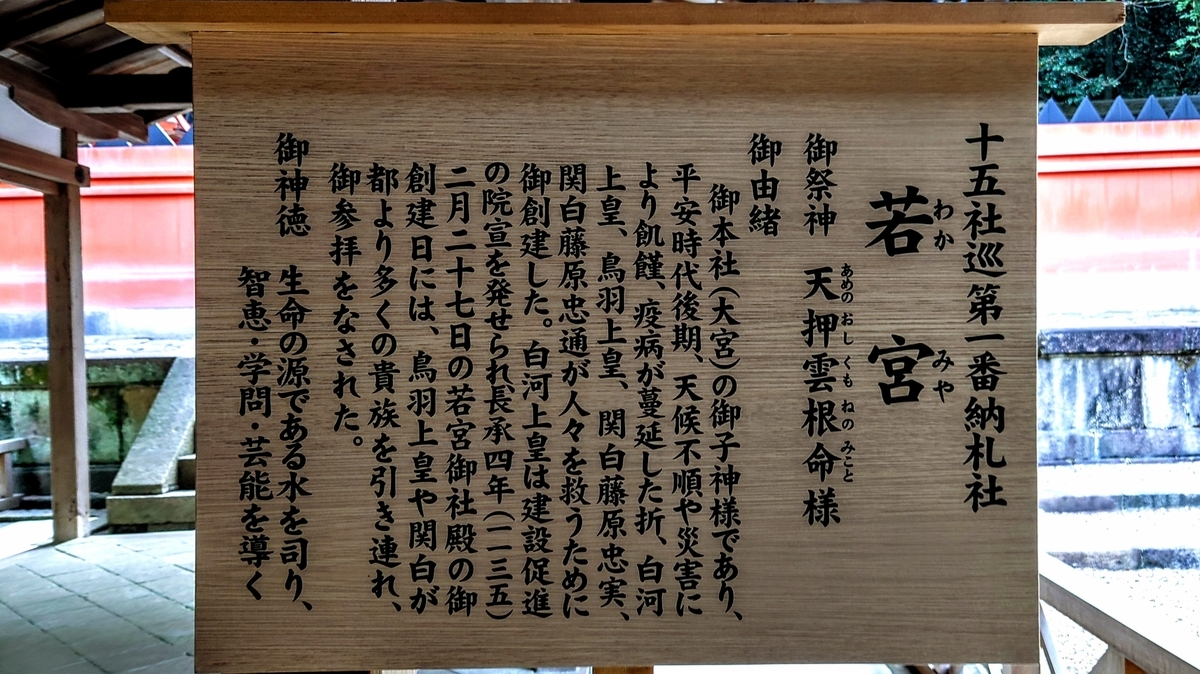 十五社巡第一番納札社
若宮
わかみや
御祭神 天押雲根命様
あめのおしくもねのみこと
御由緒
御本社(大宮)の御子神様であり、
平安時代後期、天候不順や災害に
より飢饉、疫病が蔓延した折、白河
上皇、鳥羽上皇、関白藤原忠実、
関白藤原忠通が人々を救うために
御創建した。白河上皇は建設促進
の院宣を発せられ長承四年(一一三五)
二月二十七日の若宮御社殿の御
創建日には、鳥羽上皇や関白が
都より多くの貴族を引き連れ、
御参拝をなされた。
御神徳 生命の源である水を司り、
智恵・学問・芸能を導く